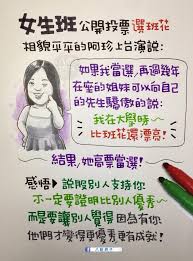 女生班 公開投票 選班花
相貌平平的阿珍上台演說:
如果我當選,再過幾年
在座的姐妹可以向自己
的先生驕傲的說:
我在大學時~
比班花還漂亮!
結果,她高票當選!
感悟▶說服別人支持你
不一定要證明比別人優秀~
而是要讓別人覺得因為有你
他們才變得更優秀更有成就!